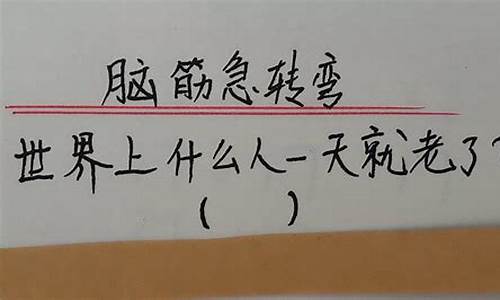 脑筋急转弯
世界上什么人一天就老了?
( )